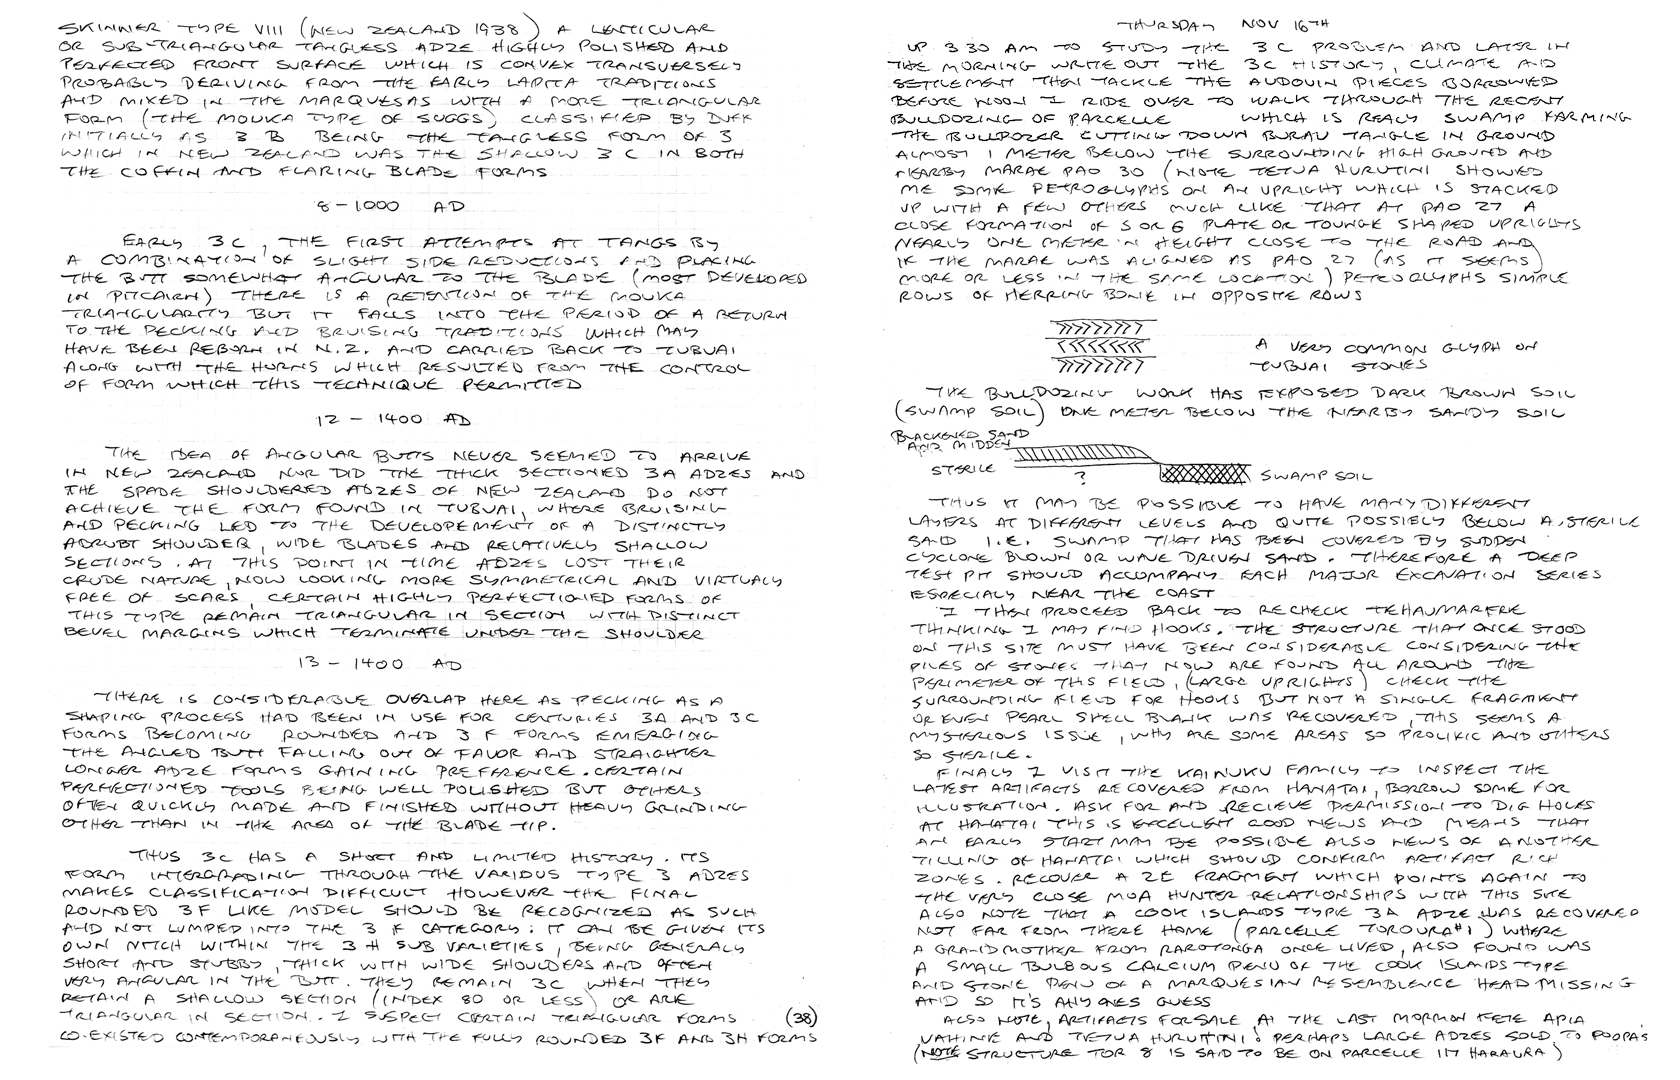 SKINNER TYPE VIII (NEW ZEALAND 1938) A LENTICULAR
OR SUB-TRIANGULAR TANGLESS ADZE HIGHLY POLISHED AND
PERFECTED FRONT SURFACE WHICH IS CONVEX TRANSVERSELY
PROBABLY DERIVING FROM THE EARLY LAPITA TRADITIONS
AND MIXED IN THE MARQUESAS WITH A MORE TRIANGULAR
FORM (THE MOUKA TYPE OF SUGGS) CLASSIFIED BY DUFF
INITIALLY AS 3 B BEING THE TANGLESS FORM OF 3
WHICH IN NEW ZEALAND WAS THE SHALLOW 3 C IN BOTH
THE COFFIN AND FLARING BLADE FORMS
8-1000 AD
EARLY 3C, THE FIRST ATTEMPTS AT TANGS BY
A COMBINATION OF SLIGHT SIDE REDUCTIONS AND PLACING
THE BUTT SOMEWHAT ANGULAR TO THE BLADE (MOST DEVELOPED
IN PITCAIRN) THERE IS A RETENTION OF THE MOUKA
TRIANGULARITY BUT IT FALLS INTO THE PERIOD OF A RETURN
TO THE PECKING AND BRUISING TRADITIONS WHICH MAY
HAVE BEEN REBORN IN N.Z. AND CARRIED BACK TO TUBUAI
ALONG WITH THE HORNS WHICH RESULTED FROM THE CONTROL
OF FORM WHICH THIS TECHNIQUE PERMITTED
12 - 1400 AD
THE IDEA OF ANGULAR BUTTS NEVER SEEMED TO ARRIVE
IN NEW ZEALAND NOR DID THE THICK SECTIONED 3A ADZES AND
THE SPADE SHOULDERED ADZES OF NEW ZEALAND DO NOT
ACHIEVE THE FORM FOUND IN TUBUAI, WHERE BRUISING
AND PECKING LED TO THE DEVELOPEMENT OF A DISTINCTLY
ABRUBT SHOULDER, WIDE BLADES AND RELATIVELY SHALLOW
SECTIONS. AT THIS POINT IN TIME ADZES LOST THEIR
CRUDE NATURE, NOW LOOKING MORE SYMMETRICAL AND VIRTUALY
FREE OF SCARS, CERTAIN HIGHLY PERFECTIONED FORMS OF
THIS TYPE REMAIN TRIANGULAR IN SECTION WITH DISTINCT
BEVEL MARGINS WHICH TERMINATE UNDER THE SHOULDER
13 - 1400 AD
THERE IS CONSIDERABLE OVERLAP HERE AS PECKING AS A
SHAPING PROCESS HAD BEEN IN USE FOR CENTURIES 3A AND 3C
FORMS BECOMING ROUNDED AND 3 F FORMS EMERGING
THE ANGLED BUTT FALLING OUT OF FAVOR AND STRAIGHTER
LONGER ADZE FORMS GAINING PREFERENCE. CERTAIN
PERFECTIONED TOOLS BEING WELL POLISHED BUT OTHERS
OFTEN QUICKLY MADE AND FINISHED WITHOUT HEAVY GRINDING
OTHER THAN IN THE AREA OF THE BLADE TIP.
THUS 3C HAS A SHORT AND LIMITED HISTORY. ITS
FORM INTERGRADING THROUGH THE VARIOUS TYPE 3 ADZES
MAKES CLASSIFICATION DIFFICULT HOWEVER THE FINAL
ROUNDED 3F LIKE MODEL SHOULD BE RECOGNIZED AS SUCH
AND NOT LUMPED INTO THE 3 F CATEGORY: IT CAN BE GIVEN ITS
OWN NITCH WITHIN THE 3 H SUB VARIETIES, BEING GENERALY
SHORT AND STUBBY, THICK WITH WIDE SHOULDERS AND OFTEN
VERY ANGULAR IN THE BUTT. THEY REMAIN 3C WHEN THEY
RETAIN A SHALLOW SECTION (INDEX 80 OR LESS) OR ARE
TRIANGULAR IN SECTION. I SUSPECT CERTAIN TRIANGULAR FORMS (38)
CO-EXISTED CONTEMPORANEOUSLY WITH THE FULLY ROUNDED 3F AND 3H FORMS
THURSDAY NOV 16TH
UP 3 30 AM TO STUDY THE 3 C PROBLEM AND LATER IN
THE MORNING WRITE OUT THE 3C HISTORY, CLIMATE AND
SETTLEMENT THEN TACKLE THE AUDOUIN PIECES BORROWED
BEFORE NOON I RIDE OVER TO WALK THROUGH THE RECENT
BULLDOZING OF PARCELLE WHICH IS REALY SWAMP FARMING
THE BULLDOZER CUTTING DOWN BURAU TANGLE IN GROUND
ALMOST 1 METER BELOW THE SURROUNDING HIGH GROUND AND
NEARBY MARAE PAO 30 (NOTE TETUA HURUTINI SHOWED
ME SOME PETROGLYPHS ON AN UPRIGHT WHICH IS STACKED
UP WITH A FEW OTHERS MUCH LIKE THAT AT PAO 27 A
CLOSE FORMATION OF 5 OR 6 PLATE OR TOUNGE SHAPED UPRIGHTS
NEARLY ONE METER IN HEIGHT CLOSE TO THE ROAD AND
IF THE MARAE WAS ALIGNED AS PAO 27 (AS IT SEEMS)
MORE OR LESS IN THE SAME LOCATION) PETROGLYPHS SIMPLE
ROWS OF HERRING BONE IN OPPOSITE ROWS
A VERY COMMON GLYPH ON
TUBUAI STONES
THE BULLDOZING WORK HAS EXPOSED DARK BROWN SOIL
(SWAMP SOIL) ONE METER BELOW THE NEARBY SANDY SOIL
BLACKENED SAND
AND MIDDEN
STERILE ? SWAMP SOIL
THUS IT MAY BE POSSIBLE TO HAVE MANY DIFFERENT
LAYERS AT DIFFERENT LEVELS AND QUITE POSSIBLY BELOW A STERILE
SAND I.E. SWAMP THAT HAS BEEN COVERED BY SUDDEN
CYCLONE BLOWN OR WAVE DRIVEN SAND. THEREFORE A DEEP
TEST PIT SHOULD ACCOMPANY EACH MAJOR EXCAVATION SERIES
ESPECIALY NEAR THE COAST
I THEN PROCEED BACK TO RECHECK TEHAUMARERE
THINKING I MAY FIND HOOKS. THE STRUCTURE THAT ONCE STOOD
ON THIS SITE MUST HAVE BEEN CONSIDERABLE CONSIDERING THE
PILES OF STONES THAT NOW ARE FOUND ALL AROUND THE
PERIMETER OF THIS FIELD, (LARGE UPRIGHTS) CHECK THE
SURROUNDING FIELD FOR HOOKS BUT NOT A SINGLE FRAGMENT
OR EVEN PEARL SHELL BLANK WAS RECOVERED, THIS SEEMS A
MYSTERIOUS ISSUE, WHY ARE SOME AREAS SO PROLIFIC AND OTHERS
SO STERILE.
FINALY I VISIT THE KAINUKU FAMILY TO INSPECT THE
LATEST ARTIFACTS RECOVERED FROM HANATAI, BORROW SOME FOR
ILLUSTRATION. ASK FOR AND RECIEVE PERMISSION TO DIG HOLES
AT HANATAI THIS IS EXCELLENT GOOD NEWS AND MEANS THAT
AN EARLY START MAY BE POSSIBLE ALSO NEWS OF ANOTHER
TILLING OF HANATAI WHICH SHOULD CONFIRM ARTIFACT RICH
ZONES. RECOVER A 2E FRAGMENT WHICH POINTS AGAIN TO
THE VERY CLOSE MOA HUNTER RELATIONSHIPS WITH THIS SITE
ALSO NOTE THAT A COOK ISLANDS TYPE 3A ADZE WAS RECOVERED
NOT FAR FROM THERE HOME (PARCELLE TOROURA #1) WHERE
A GRANDMOTHER FROM RAROTONGA ONCE LIVED, ALSO FOUND WAS
A SMALL BULBOUS CALCIUM PENU OF THE COOK ISLANDS TYPE
AND STONE PENU OF A MARQUESIAN RESEMBLENCE HEAD MISSING
AND SO IT'S ANYONES GUESS
ALSO NOTE, ARTIFACTS FOR SALE AT THE LAST MORMON FETE APIA
VAHINE AND TETUA HURUTINI! PERHAPS LARGE ADZES SOLD TO POOPA'S
(NOTE STRUCTURE TOR 8 IS SAID TO BE ON PARCELLE 117 HARAURA)